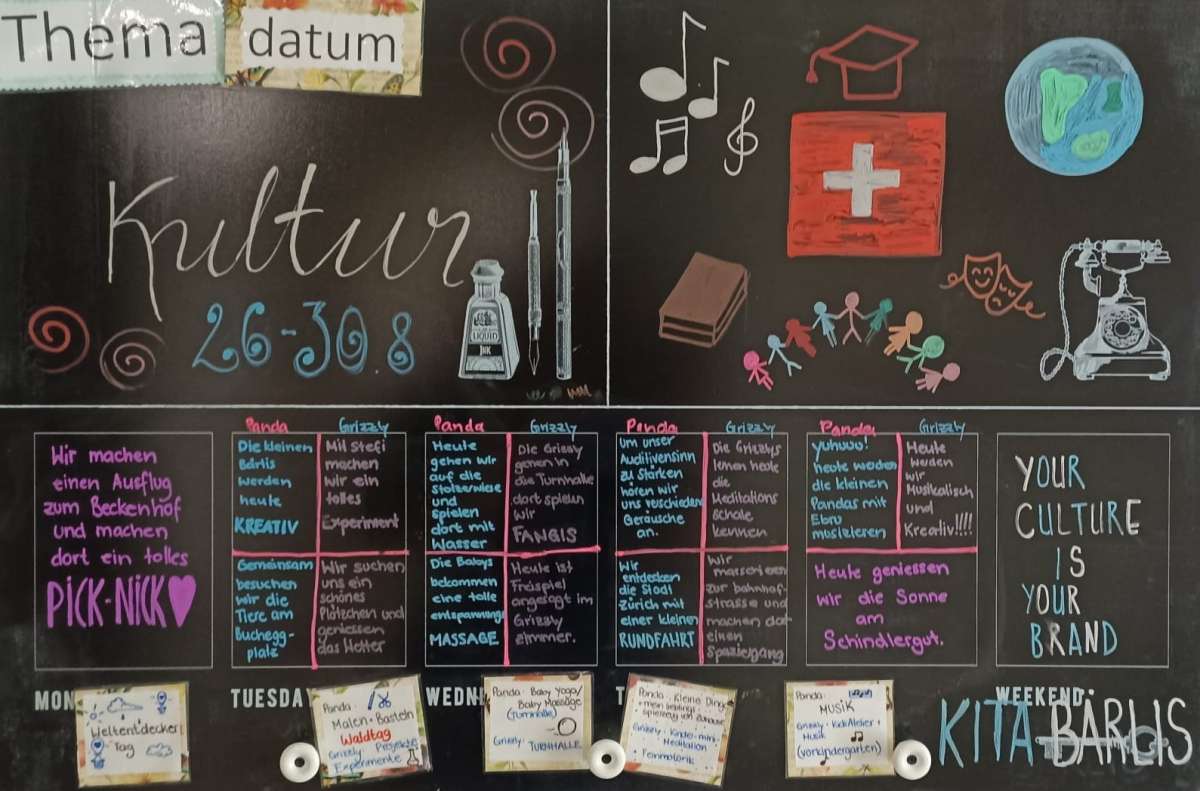 Thema
datum
Kultur
26-30.8
LIQUID
INK
Wir machen
einen Ausflug
zum Beckenhof
und machen
dort ein tolles
PICK-NICK
Panda
Grizzly
Die kleinen
Bärlis
werden
heute
KREATIV
Mit Stefi
machen
wir ein
tolles
Experiment
Gemeinsam
besuchen
wir die
Tiere am
Buchegg-
platz
Wir suchen
uns ein
schönes
Plätzchen und
geniessen
das Wetter
Panda
Grizzly
Heute
gehen wir
auf die
und
spielen
dort mit
Wasser
Die Grizzly
gehen in
die Turnhalle
dort spielen
wir
FANGIS
Die Babys
bekommen
eine tolle
entspannungs
MASSAGE
Heute ist
Freispiel
angesagt im
Grizzly
zimmer.
Panda
Grizzly
um unser
Auditivensinn
zu Stärken
hören wir
uns verschieden
Geräusche
an.
Die Grizzlys
lernen heute
die
Meditations
Schale
kennen
Wir
entdecken
die Stadt
Zürich mit
einer kleinen
RUNDFAHRT
Wir
marschieren
zur bahnhof-
strasse und
machen dort
einen
Spaziergang
Panda
Grizzly
Yuhuuu!
heute werden
die kleinen
Pandas mit
Ebru
musizieren
Heute
werden
wir
Musikalisch
und
Kreativ!!!!
Heute geniessen
wir die Sonne
am
Schindlergut.
YOUR
CULTURE
IS
YOUR
BRAND
MON
TUESDAY
WEDN
T
WEEKEND
Weltentdecker
Tag
Panda:
Malen + Basteln
Waldtag
Grizzly: Projekte
Experimente
Panda: Baby Yoga/
Baby Massage
(Turnhalle)
Grizzly: TURNHALLE
Panda: Kleine Dinge
+ mein lieblings-
spielzeug von Zuhause
Grizzly: Kinder-mini-
Meditation
+ Feinmotorik
Panda:
MUSIK
Grizzly: KidsAtelier +
Musik
(Vorkindergarten)
KITA BÄRLIS